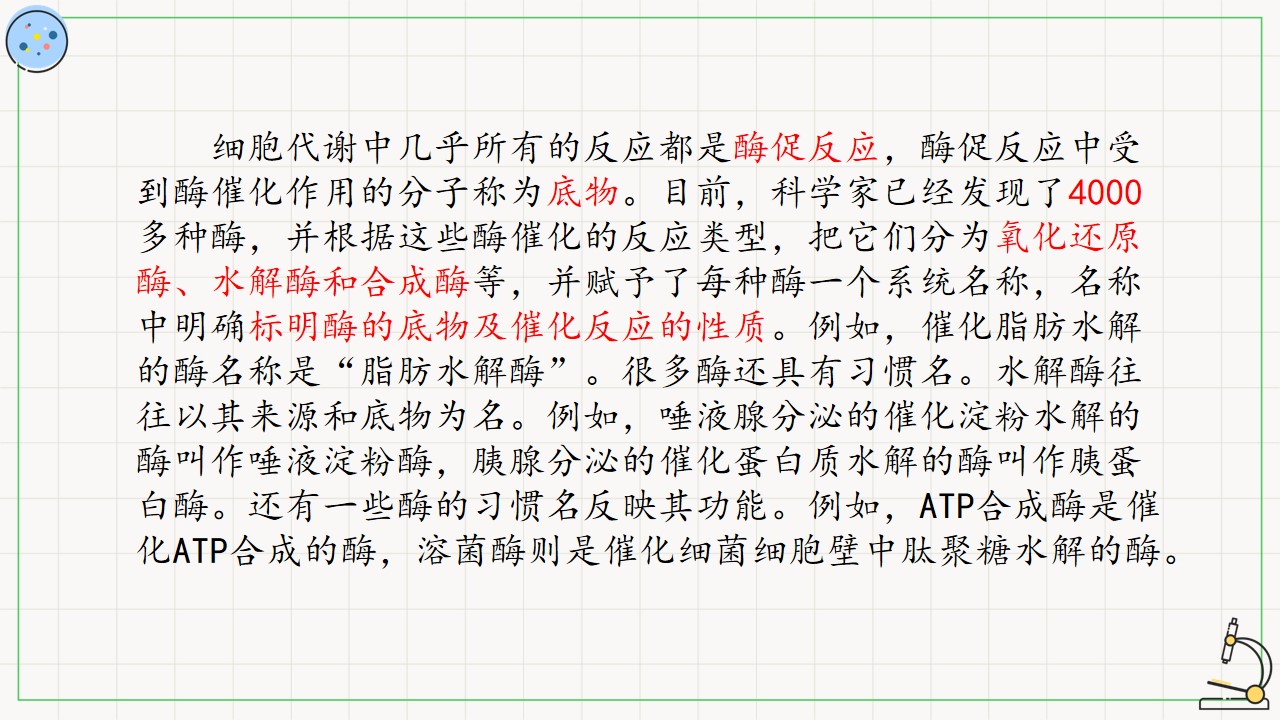 细胞代谢中几乎所有的反应都是酶促反应，酶促反应中受
到酶催化作用的分子称为底物。目前，科学家已经发现了4000
多种酶，并根据这些酶催化的反应类型，把它们分为氧化还原
酶、水解酶和合成酶等，并赋予了每种酶一个系统名称，名称
中明确标明酶的底物及催化反应的性质。例如，催化脂肪水解
的酶名称是“脂肪水解酶”。很多酶还具有习惯名。水解酶往
往以其来源和底物为名。例如，唾液腺分泌的催化淀粉水解的
酶叫作唾液淀粉酶，胰腺分泌的催化蛋白质水解的酶叫作胰蛋
白酶。还有一些酶的习惯名反映其功能。例如，ATP合成酶是催
化ATP合成的酶，溶菌酶则是催化细菌细胞壁中肽聚糖水解的酶。